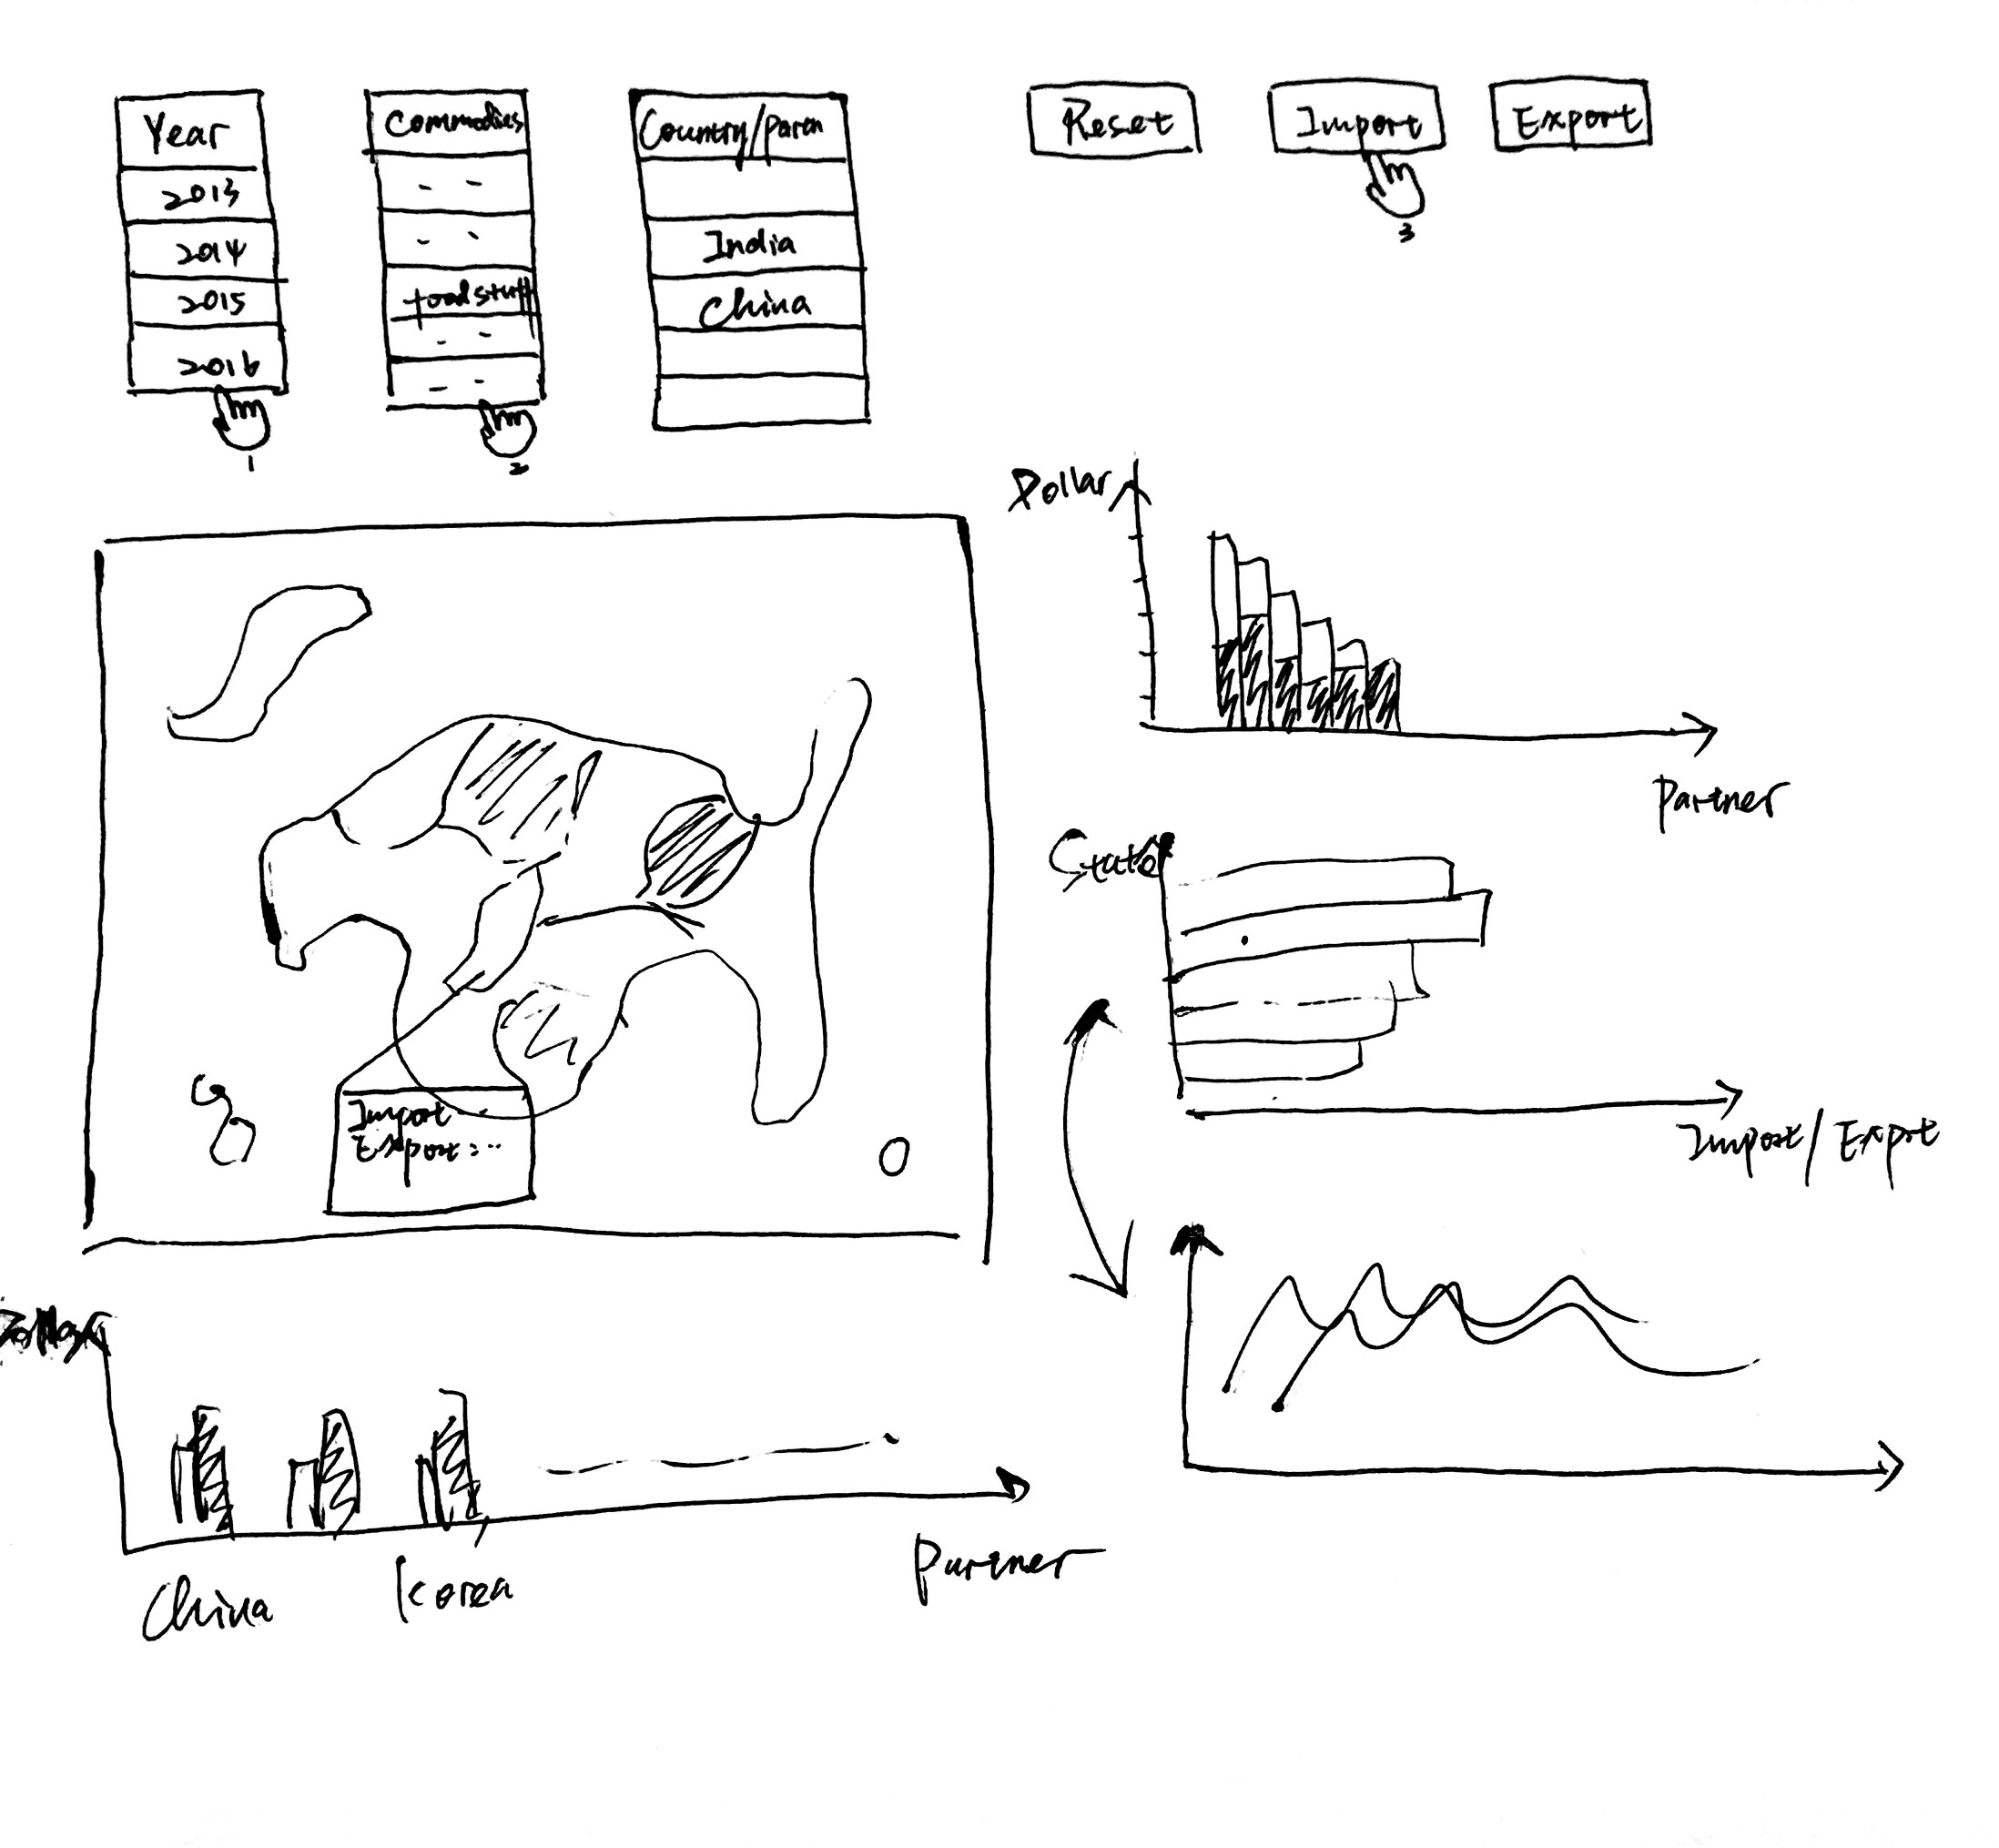 Year
2013
2014
2015
2016
1
Commodies
foodstuff
2
Country/Parth
India
China
Reset
Import
Export
3
Dollar
Partner
State
Import/Exprt
Import
Export:...
Dollar
China
Korea
Partner